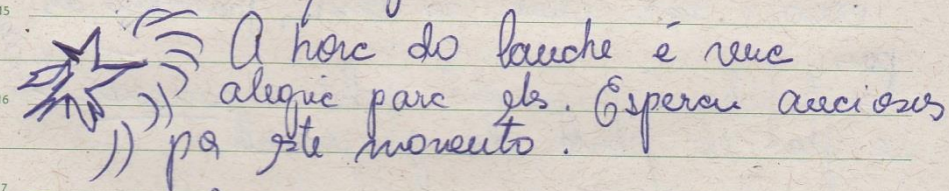 A hora do lanche é uma
alegria para eles. Esperam anciosos
por este momento.